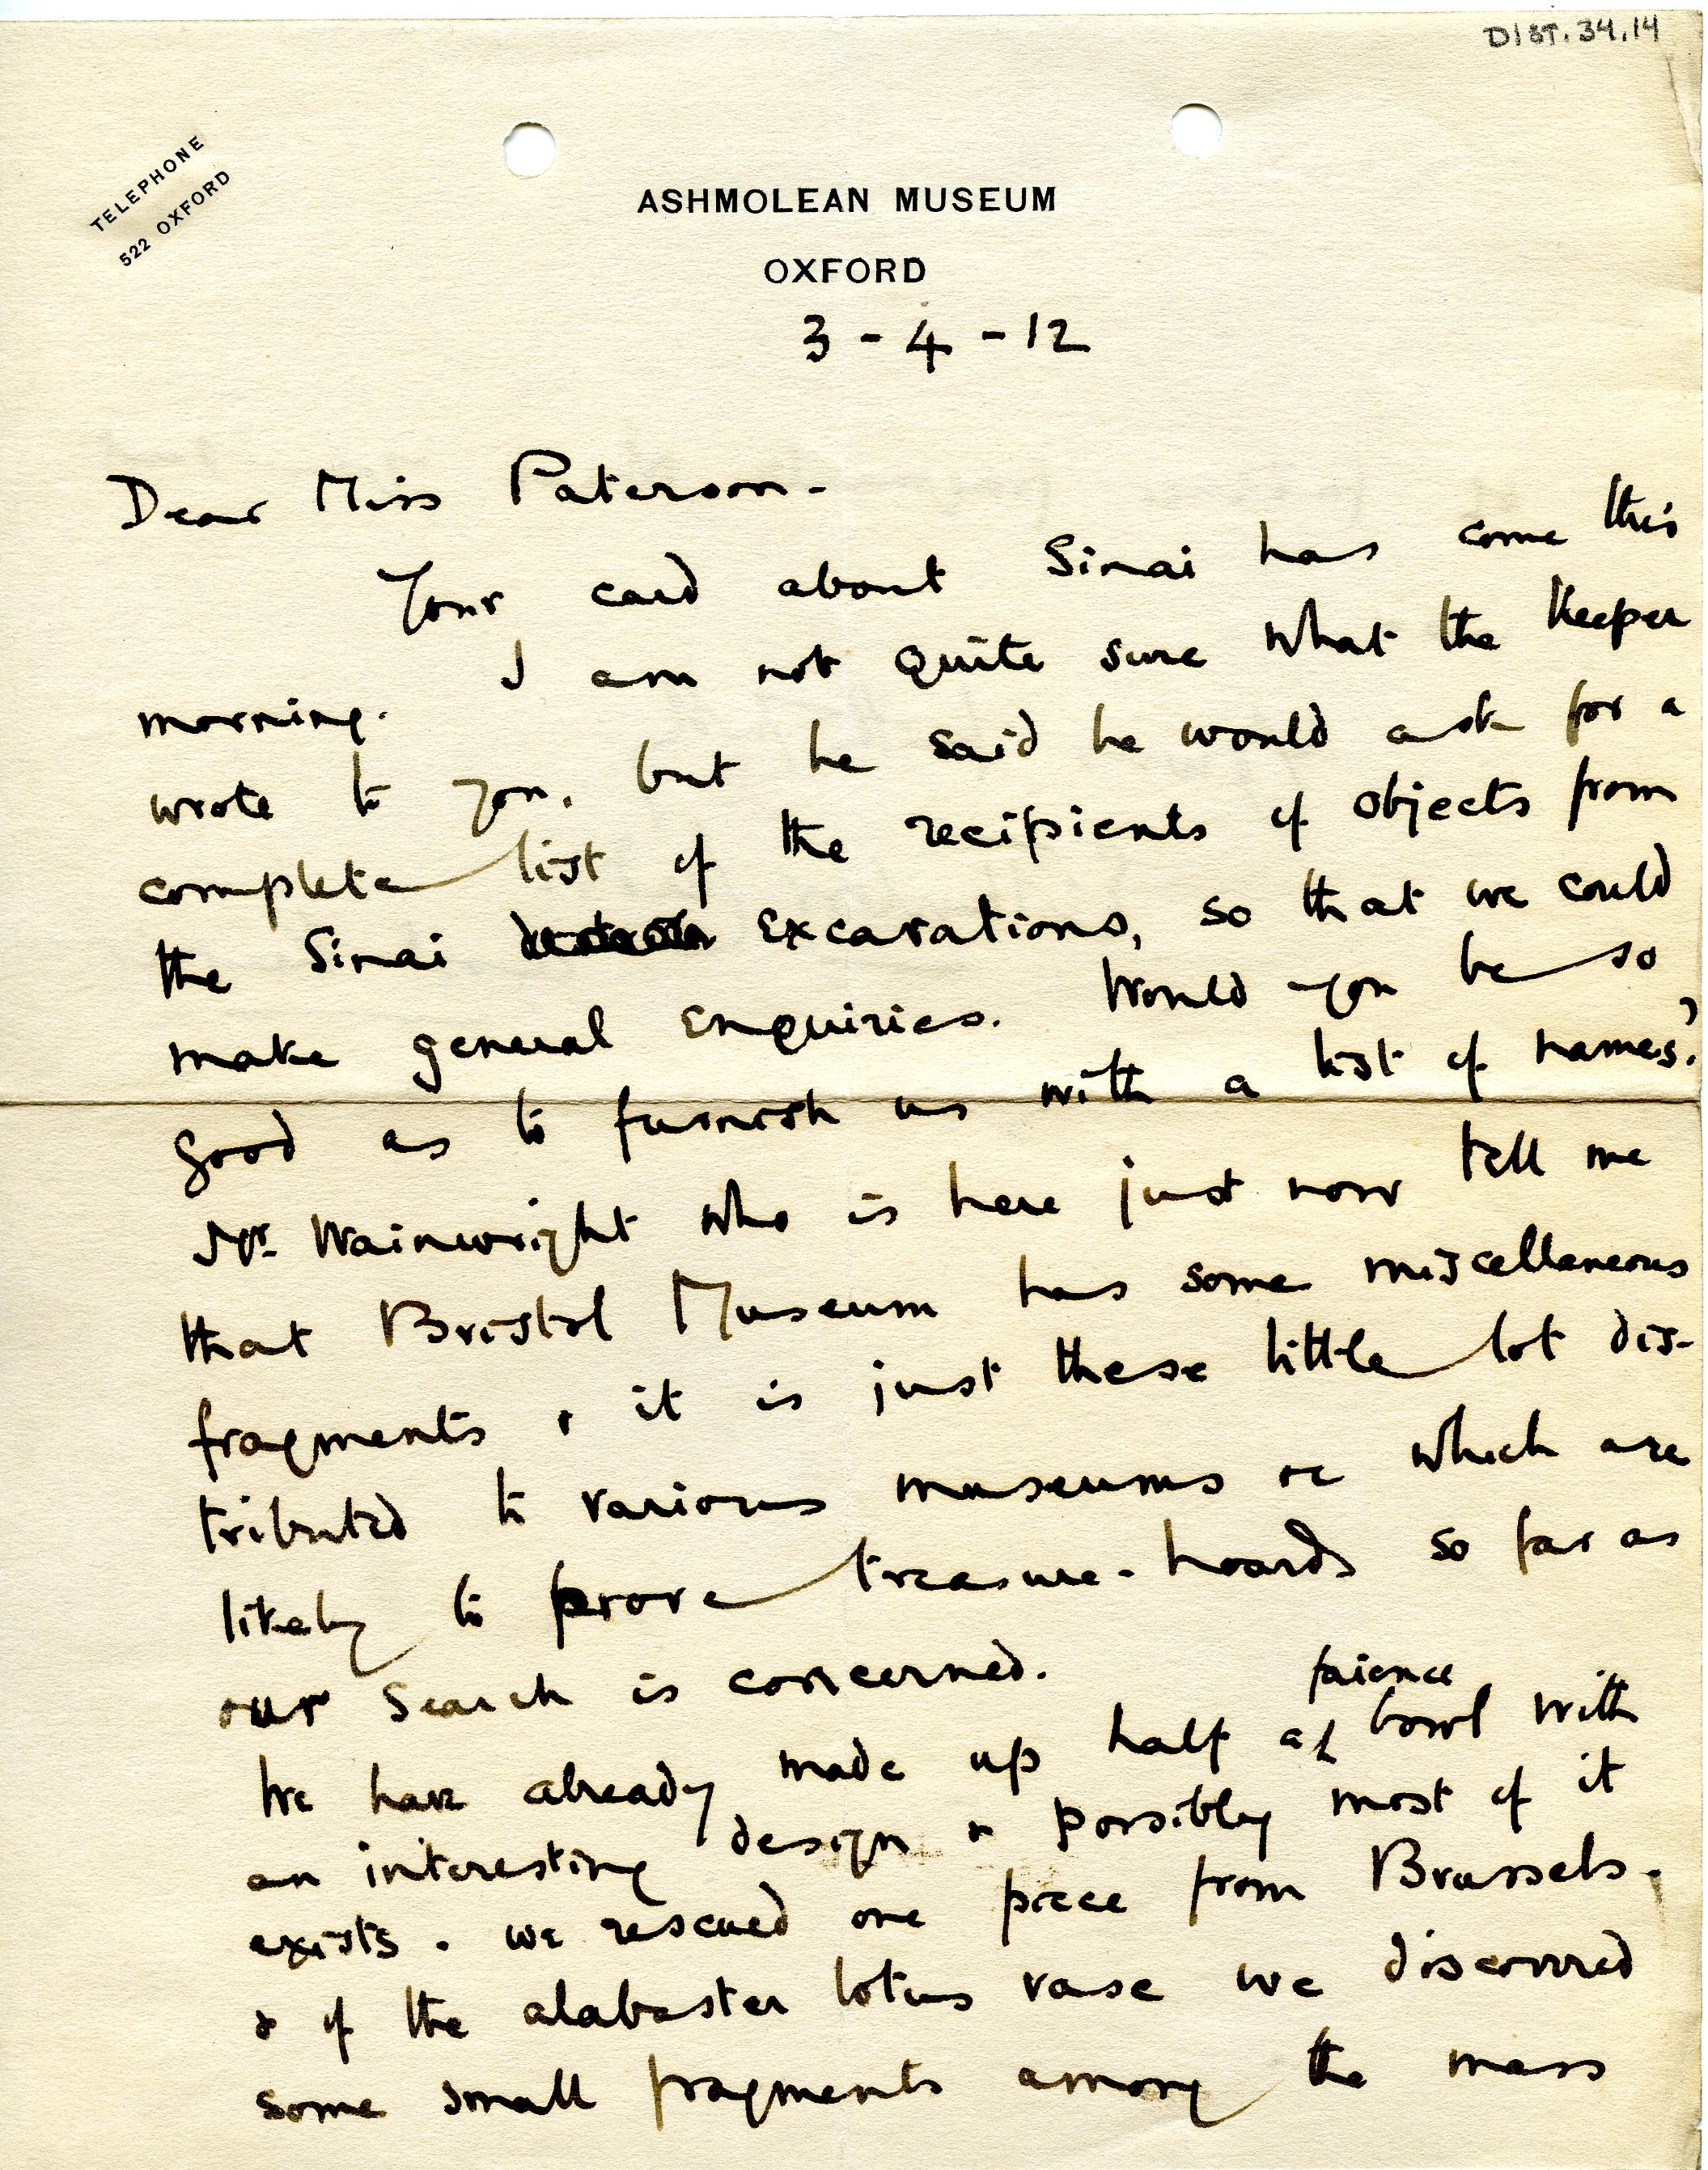 DIST.34.14
TELEPHONE
522 OXFORD
ASHMOLEAN MUSEUM
OXFORD
3 - 4 - 12
Dear Miss Paterson -
Your card about Sinai has come this
morning. I am not quite sure what the Keeper
wrote to you, but he said he would ask for a
complete list of the recipients of objects from
the Sinai excavations, so that we could
make general enquiries. Would you be so
good as to furnish us with a list of names?
Mr. Wainwright who is here just now tell me
that Bristol Museum has some miscellaneous
fragments & it is just these little lot dis-
tributed to various museums &c which are
likely to prove treasure-hoards so far as
our search is concerned.
We have already made up half a faience bowl with
an interesting design & possibly most of it
exists. We rescued one piece from Brussels.
& of the alabaster lotus vase we discovered
some small fragments among the mass